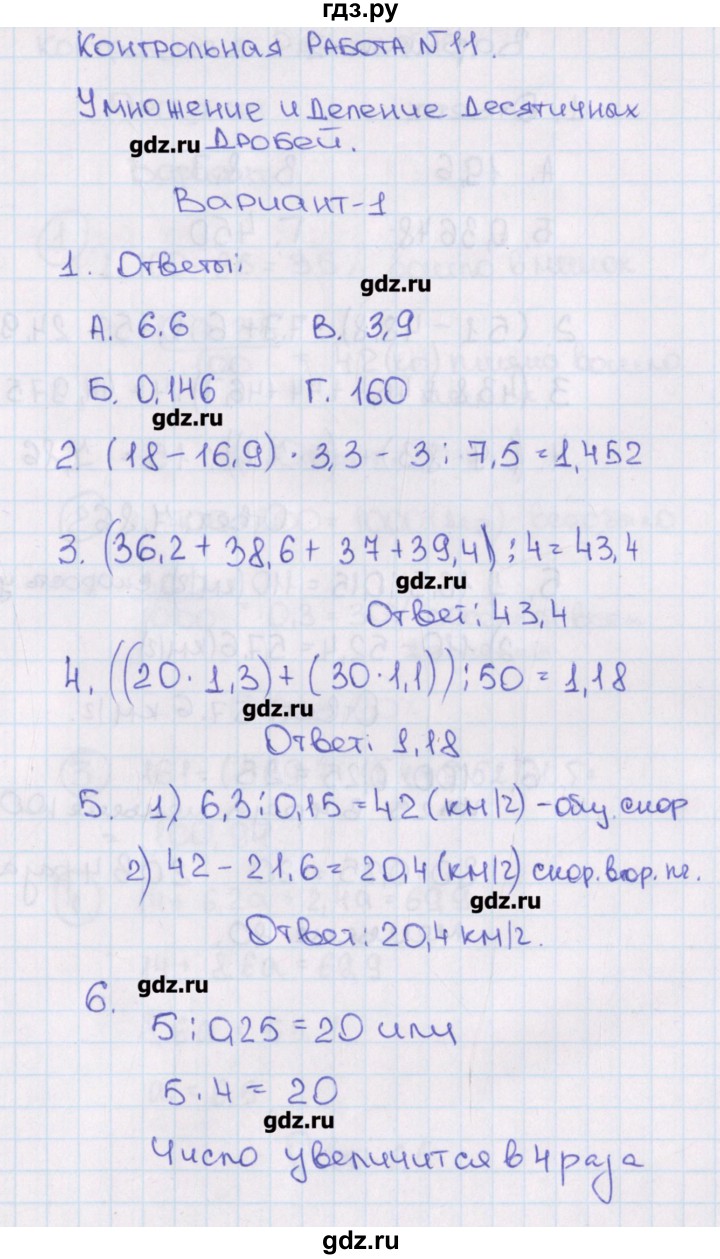 гдз.ру
Контрольная работа №11.
Умножение и деление десятичных
gdz.ru дробей.
Вариант-1
1. Ответы:
gdz.ru
А. 6.6 В. 3,9
Б. 0,146 Г. 160
gdz.ru
2 (18-16,9)·3,3-3:7,5=1,452
3. (36,2+38,6+37+39,4):4=43,4
gdz.ru
Ответ: 43,4
4. ((20·1,3)+(30·1,1)):50=1,18
gdz.ru
Ответ: 1,18
5. 1) 6,3:0,15=42(км/г)-общ.скор
2) 42-21,6=20,4(км/г) скор.втор.пг.
gdz.ru
Ответ: 20,4 км/г.
gdz.ru
6.
5:0,25=20 или
5.4= 20
gdz.ru
Число увеличится в 4 раза
gdz.ru